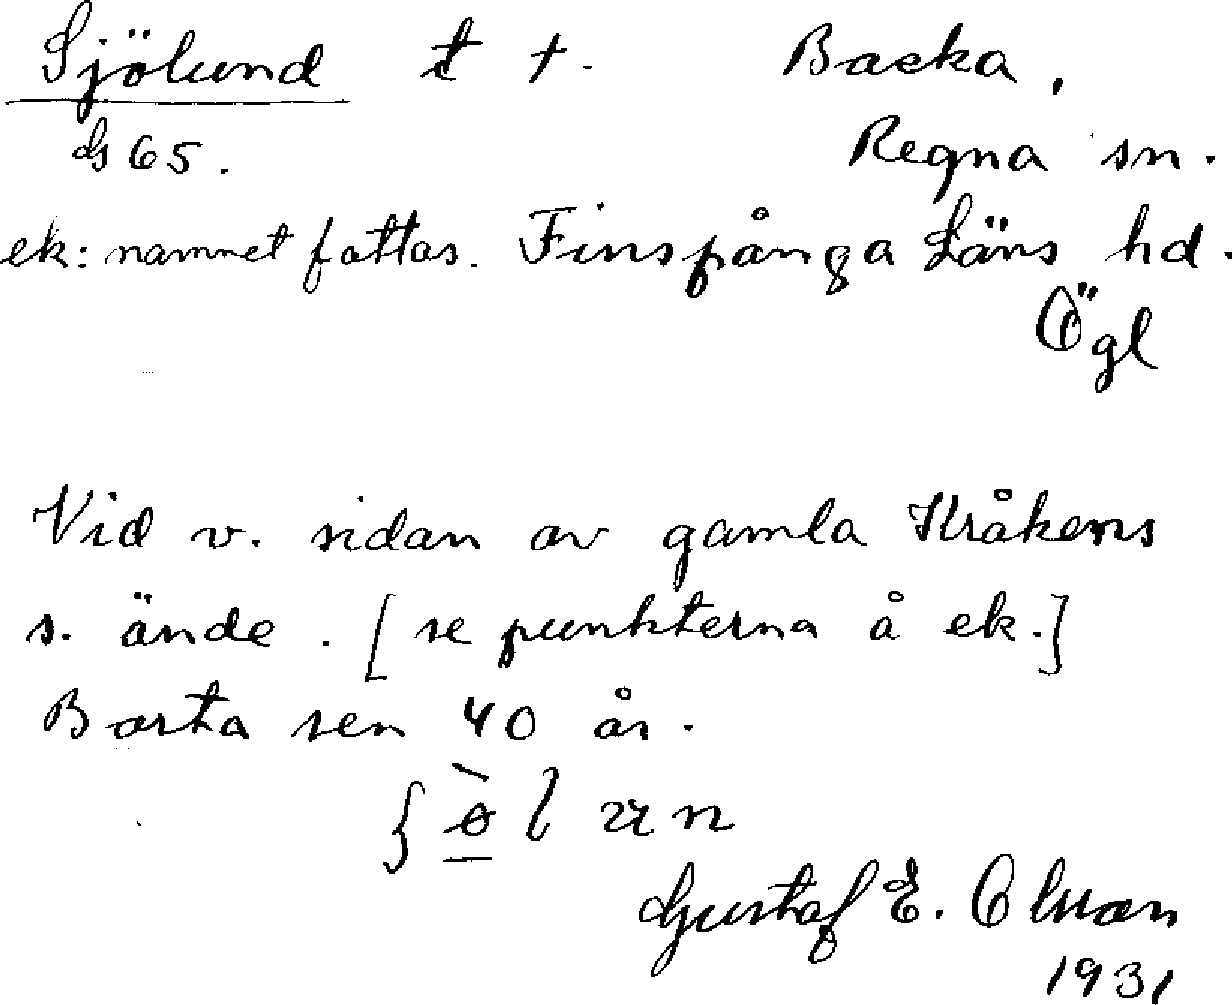 Sjölund t †. Backa,
G 65. Regna sn.
ek: namnet fattas. Finspånga Läns hd.
Ögl
Vid v. sidan av gamla Kråkens
s. ände. [se punkterna å ek.]
Borta sen 40 år.
Gustaf E. Olsson
1931